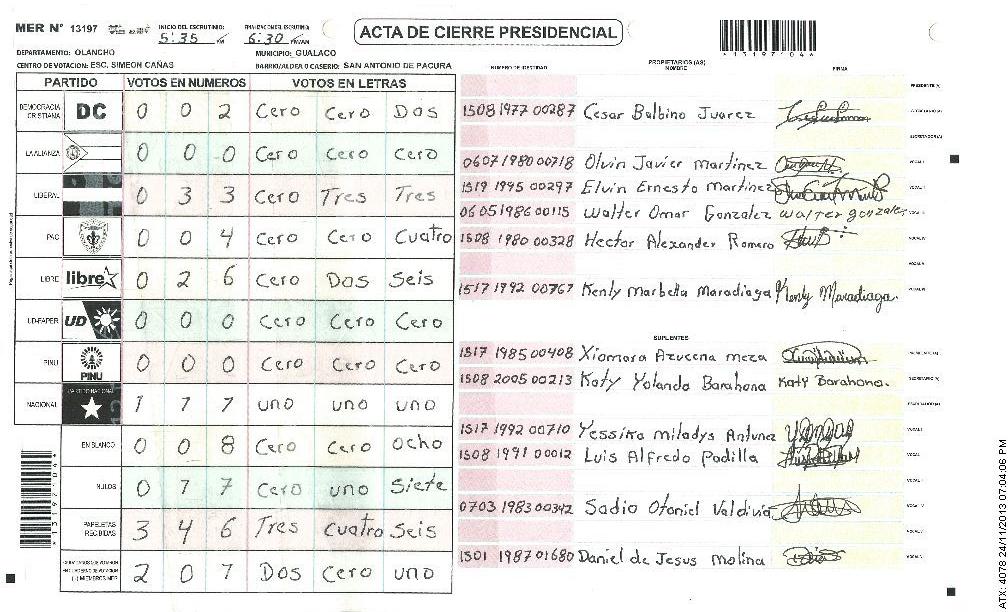 MER N° 13197
INICIO DEL ESCRUTINIO: 5:35 PM
FINALIZACION DEL ESCRUTINIO: 6:30 PM/AM
ACTA DE CIERRE PRESIDENCIAL
*131971046*
DEPARTAMENTO: OLANCHO
MUNICIPIO: GUALACO
CENTRO DE VOTACION: ESC. SIMEON CAÑAS
BARRIO/ALDEA O CASERIO: SAN ANTONIO DE PACURA
NUMERO DE IDENTIDAD
PROPIETARIOS (AS)
NOMBRE
FIRMA
PARTIDO VOTOS EN NUMEROS VOTOS EN LETRAS
DEMOCRACIA CRISTIANA DC 0 0 2 Cero Cero Dos
LA ALIANZA 0 0 0 Cero Cero Cero
LIBERAL 0 3 3 Cero Tres Tres
PAC 0 0 4 Cero Cero Cuatro
LIBRE libre 0 2 6 Cero Dos Seis
UD-FAPER UD 0 0 0 Cero Cero Cero
PINU PINU 0 0 0 Cero Cero Cero
NACIONAL 1 1 1 uno uno uno
EN BLANCO 0 0 8 Cero Cero Ocho
NULOS 0 1 7 Cero uno Siete
PAPELETAS RECIBIDAS 3 4 6 Tres Cuatro Seis
2 0 1 Dos Cero uno
1508 1977 00287 Cesar Balbino Juarez
0607 1980 00718 Olvin Javier Martinez
1519 1995 00297 Elvin Ernesto Martinez
0605 1986 00115 Walter Omar Gonzalez Walter gonzales
1508 1980 00328 Hector Alexander Romero
1517 1992 00767 Kenly Marbella Maradiaga Kenly Maradiaga.
SUPLENTES
1517 1985 00408 Xiomara Azucena meza
1508 2005 00213 Katy Yolanda Barahona Katy Barahona.
1517 1992 00710 Yessika miladys Antunez
1508 1991 00012 Luis Alfredo Padilla
0703 1983 00342 Sadio Otoniel Valdivia
1501 1987 01680 Daniel de Jesus molina
ATX: 4078 24/11/2013 07:04:06 PM